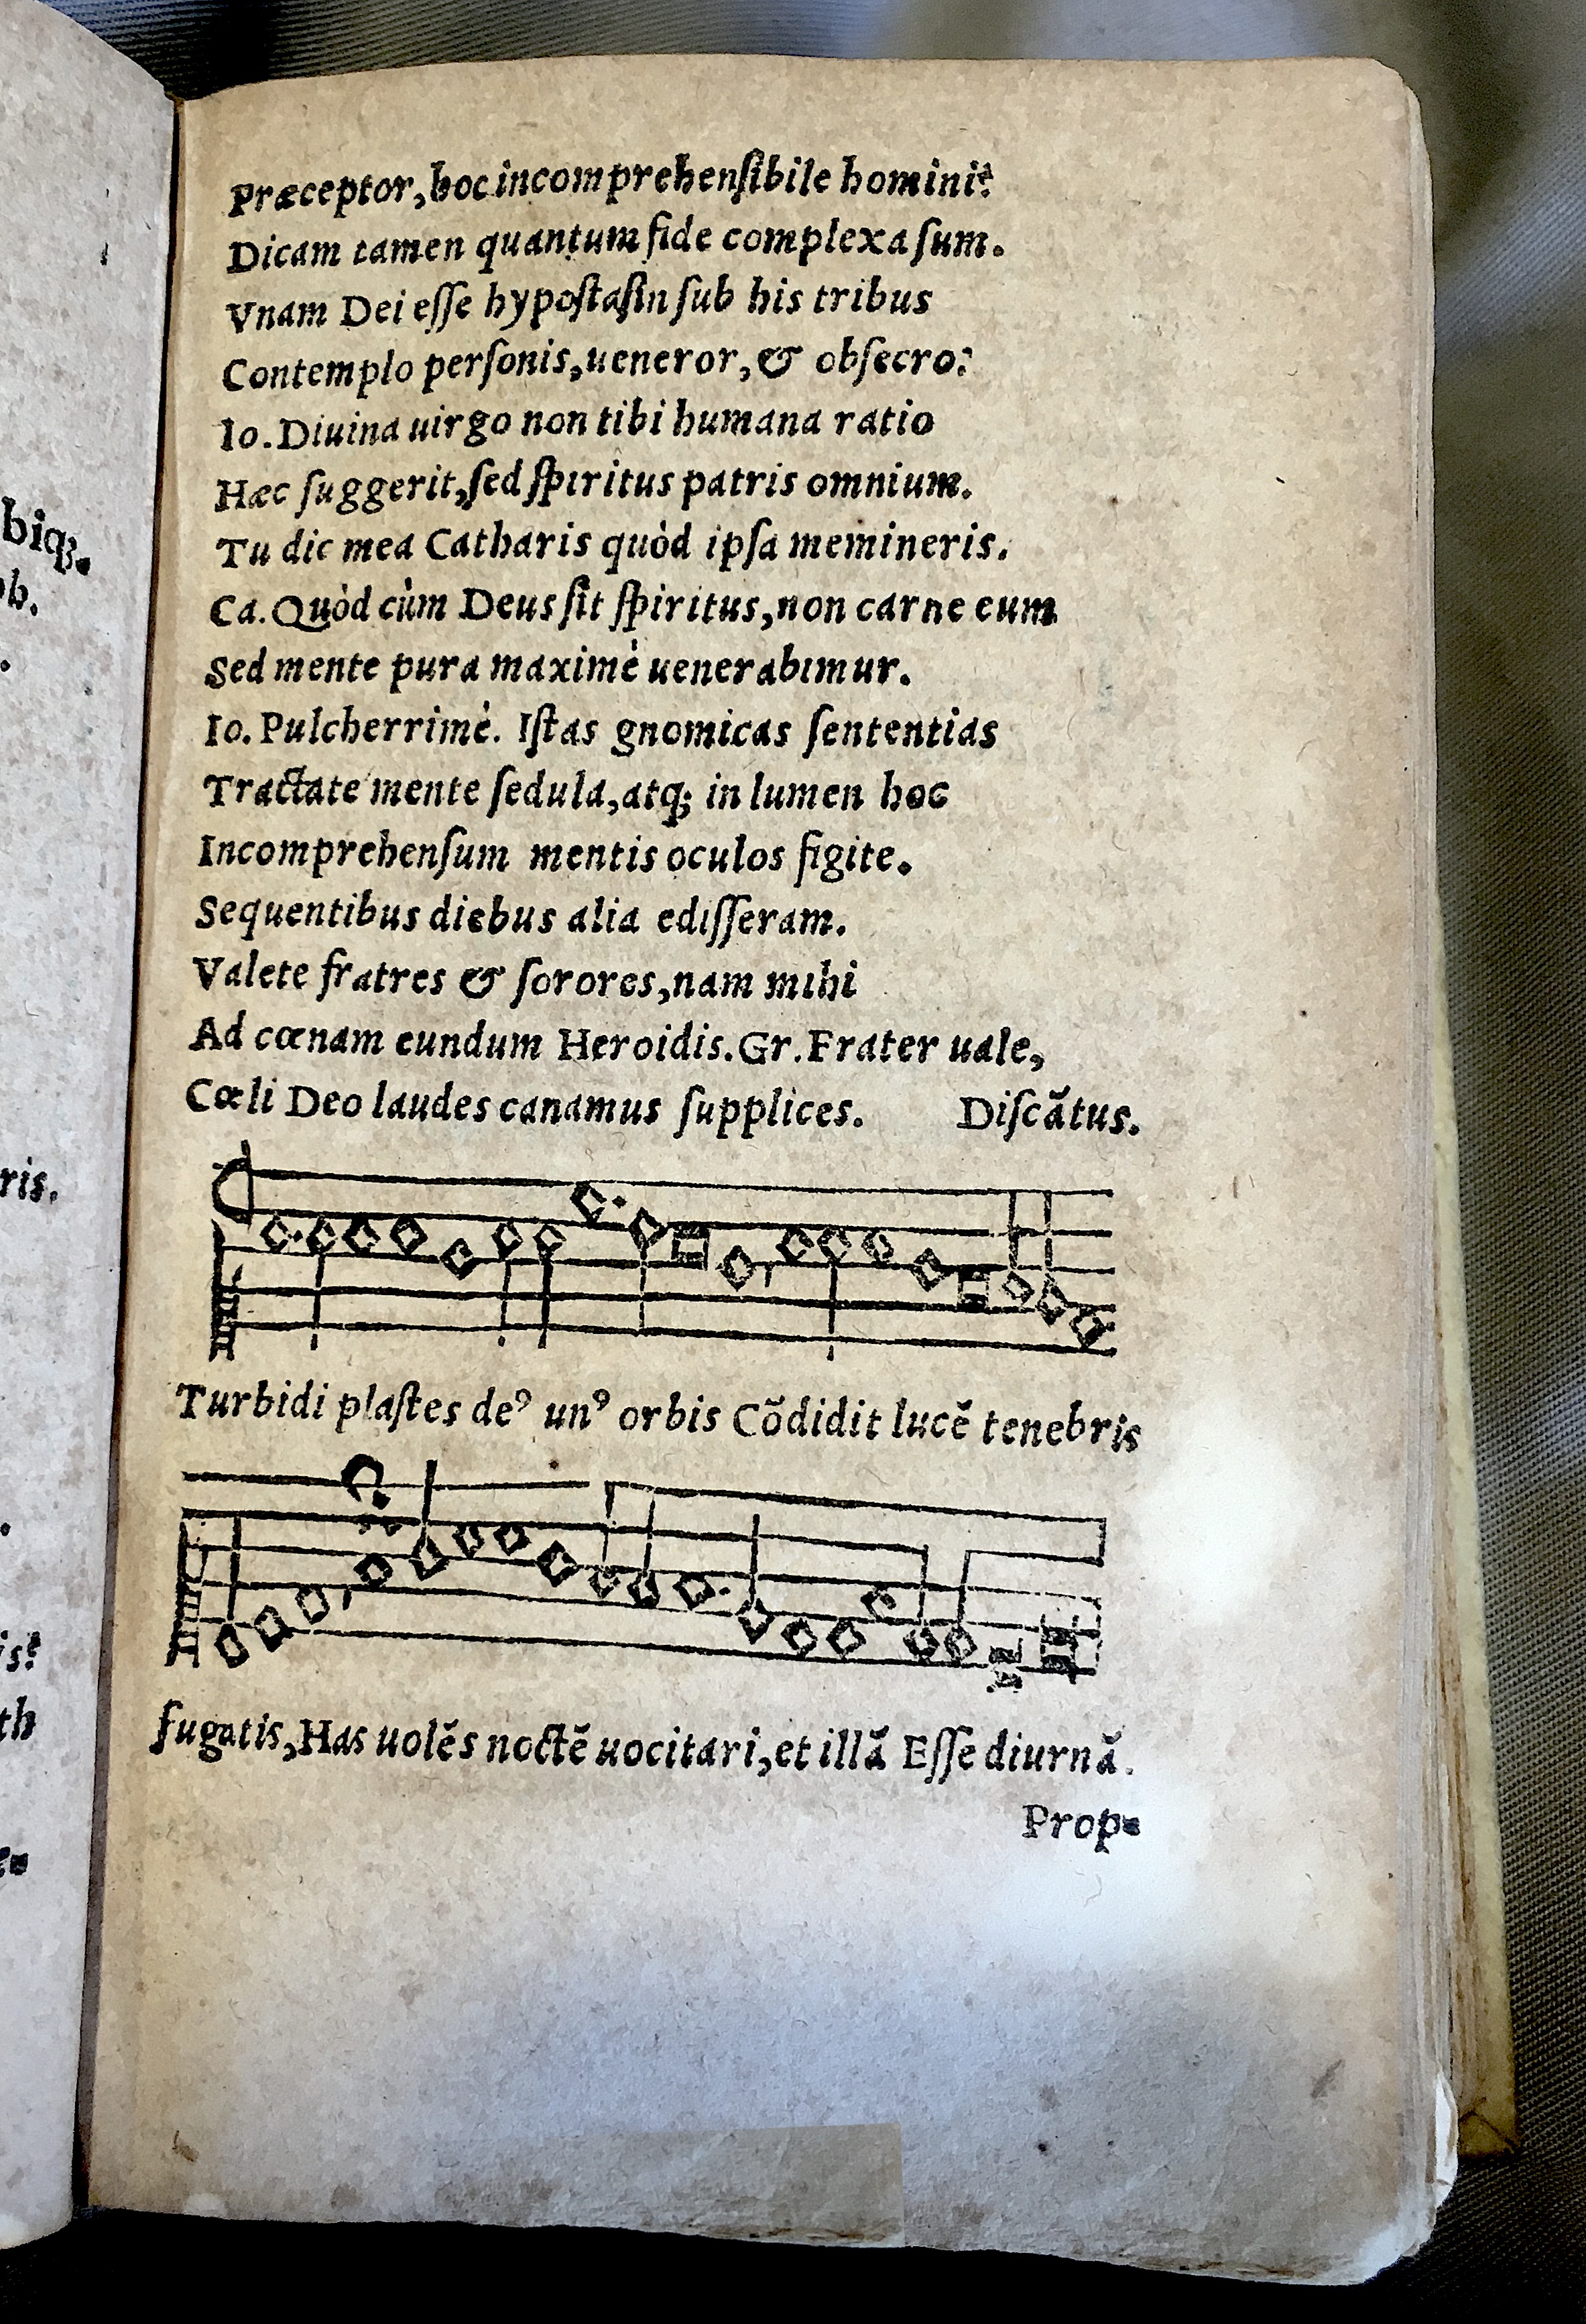 Præceptor, hoc incomprehenſibile homini?
Dicam tamen quantum fide complexa ſum.
Vnam Dei eſſe hypoſtaſin ſub his tribus
Contemplo perſonis, ueneror, & obſecro:
Io. Diuina uirgo non tibi humana ratio
Hæc ſuggerit, ſed ſpiritus patris omnium.
Tu dic mea Catharis quòd ipſa memineris.
Ca. Quòd cùm Deus ſit ſpiritus, non carne eum
Sed mente pura maximè uenerabimur.
Io. Pulcherrimè. Iſtas gnomicas ſententias
Tractate mente ſedula, atq; in lumen hoc
Incomprehenſum mentis oculos figite.
Sequentibus diebus alia ediſſeram.
Valete fratres & ſorores, nam mihi
Ad cœnam eundum Heroidis. Gr. Frater uale,
Cœli Deo laudes canamus ſupplices. Diſcãtus.
Turbidi plaſtes deꝰ unꝰ orbis Cõdidit lucẽ tenebris
fugatis, Has uolẽs noctẽ uocitari, et illã Eſſe diurnã.
Prop⸗
biqꝫ.
ob.
ris.
is?
th